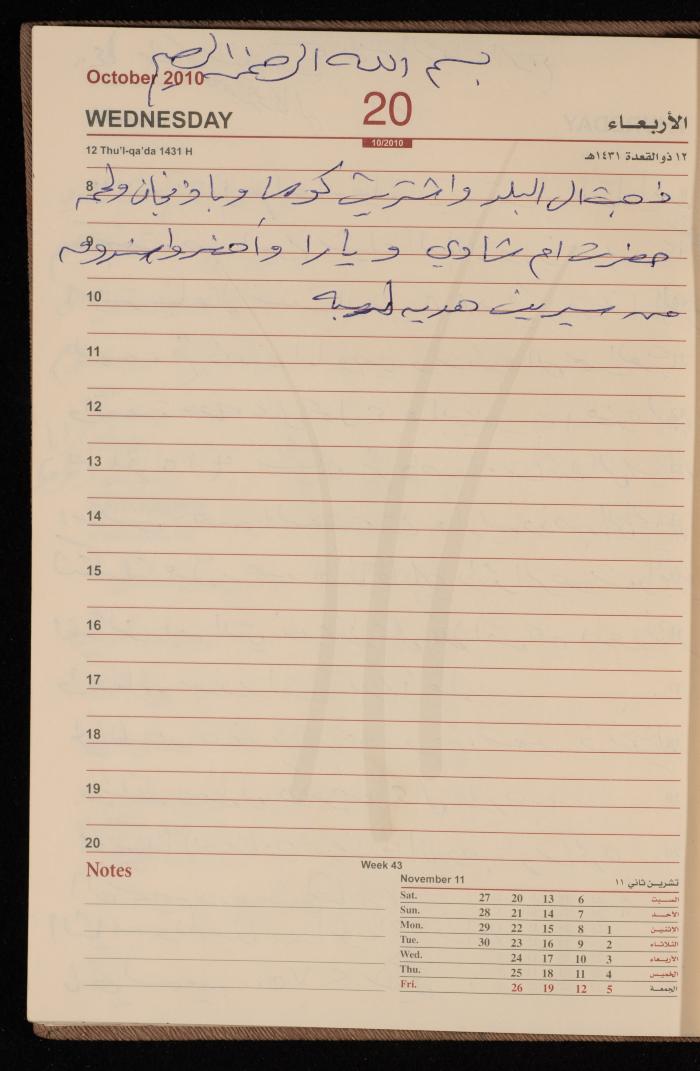 بسم الله الرحمن الرحيم
October 2010
WEDNESDAY
20
الأربعـاء
10/2010
12 Thu'l-qa'da 1431 H
١٢ ذو القعدة ١٤٣١هـ
8
ذهبت ال البلد واشتريت كوسا وباذنجان ولحمه
9
حضرت ام شادي و يارا وأحضروا
10
من سيرين هديه
11
12
13
14
15
16
17
18
19
20
Notes
Week 43
November 11 تشرين ثاني ١١
Sat. 27 20 13 6 السبت
Sun. 28 21 14 7 الأحد
Mon. 29 22 15 8 1 الاثنين
Tue. 30 23 16 9 2 الثلاثاء
Wed. 24 17 10 3 الأربعاء
Thu. 25 18 11 4 الخميس
Fri. 26 19 12 5 الجمعة